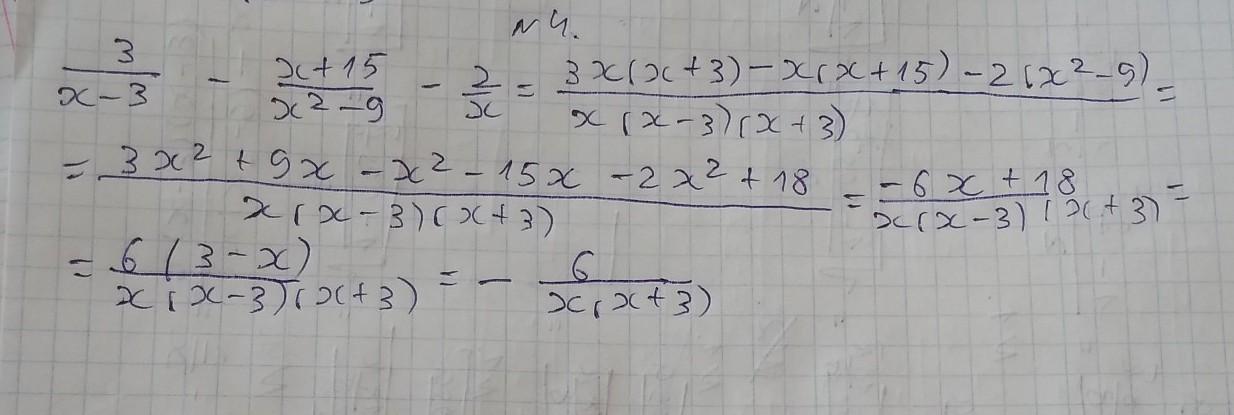 № 4.
3/(x-3) - (x+15)/(x²-9) - 2/x = (3x(x+3)-x(x+15)-2(x²-9))/(x(x-3)(x+3)) =
= (3x²+9x-x²-15x-2x²+18)/(x(x-3)(x+3)) = (-6x+18)/(x(x-3)(x+3)) =
= (6(3-x))/(x(x-3)(x+3)) = - 6/(x(x+3))